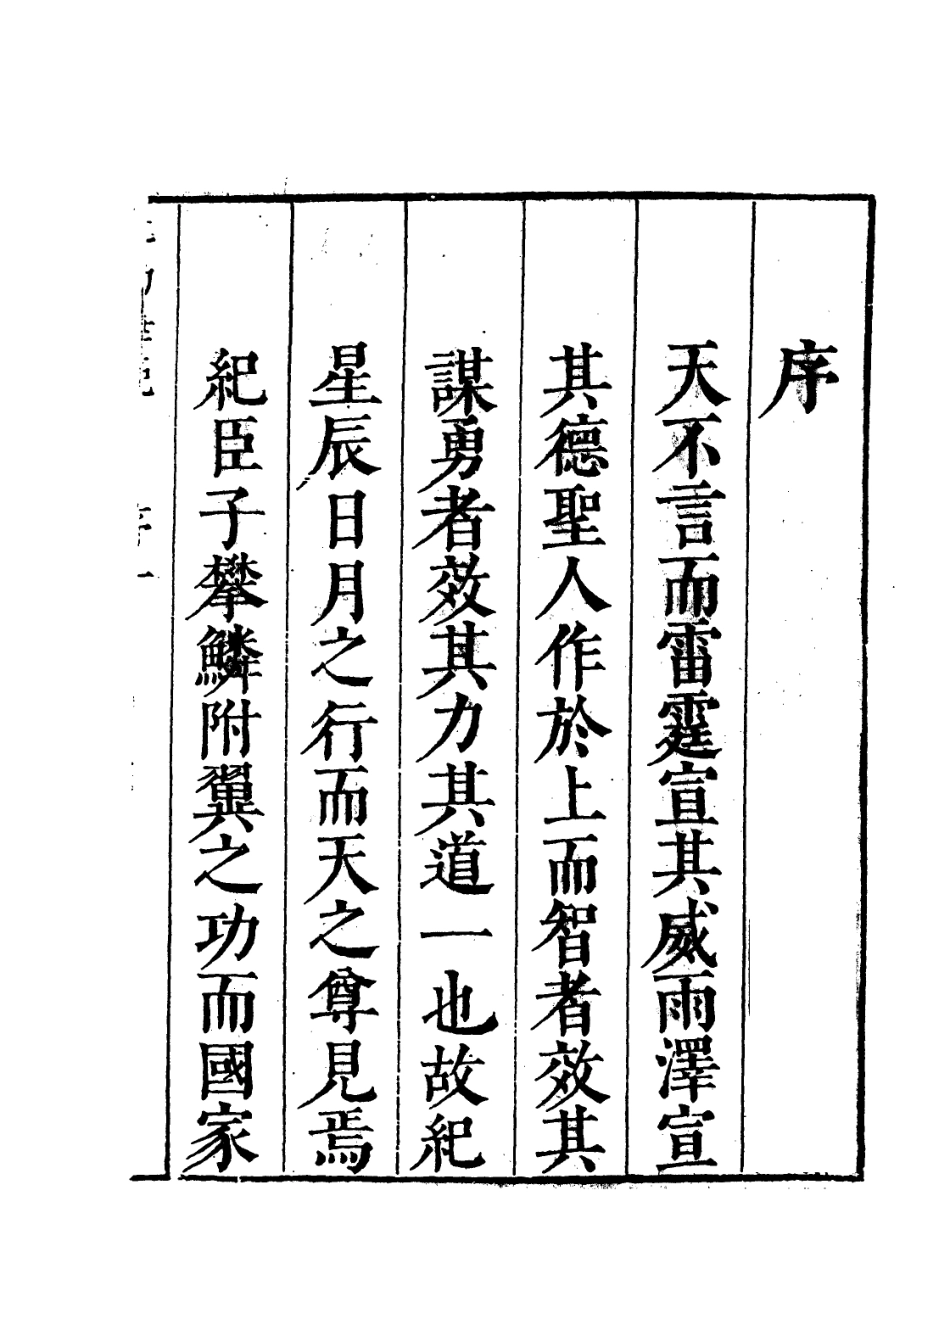 序
天不言而雷霆宣其威雨澤宣
其德聖人作於上而智者效其
謀勇者效其力其道一也故紀
星辰日月之行而天之尊見焉
紀臣子攀鱗附翼之功而國家